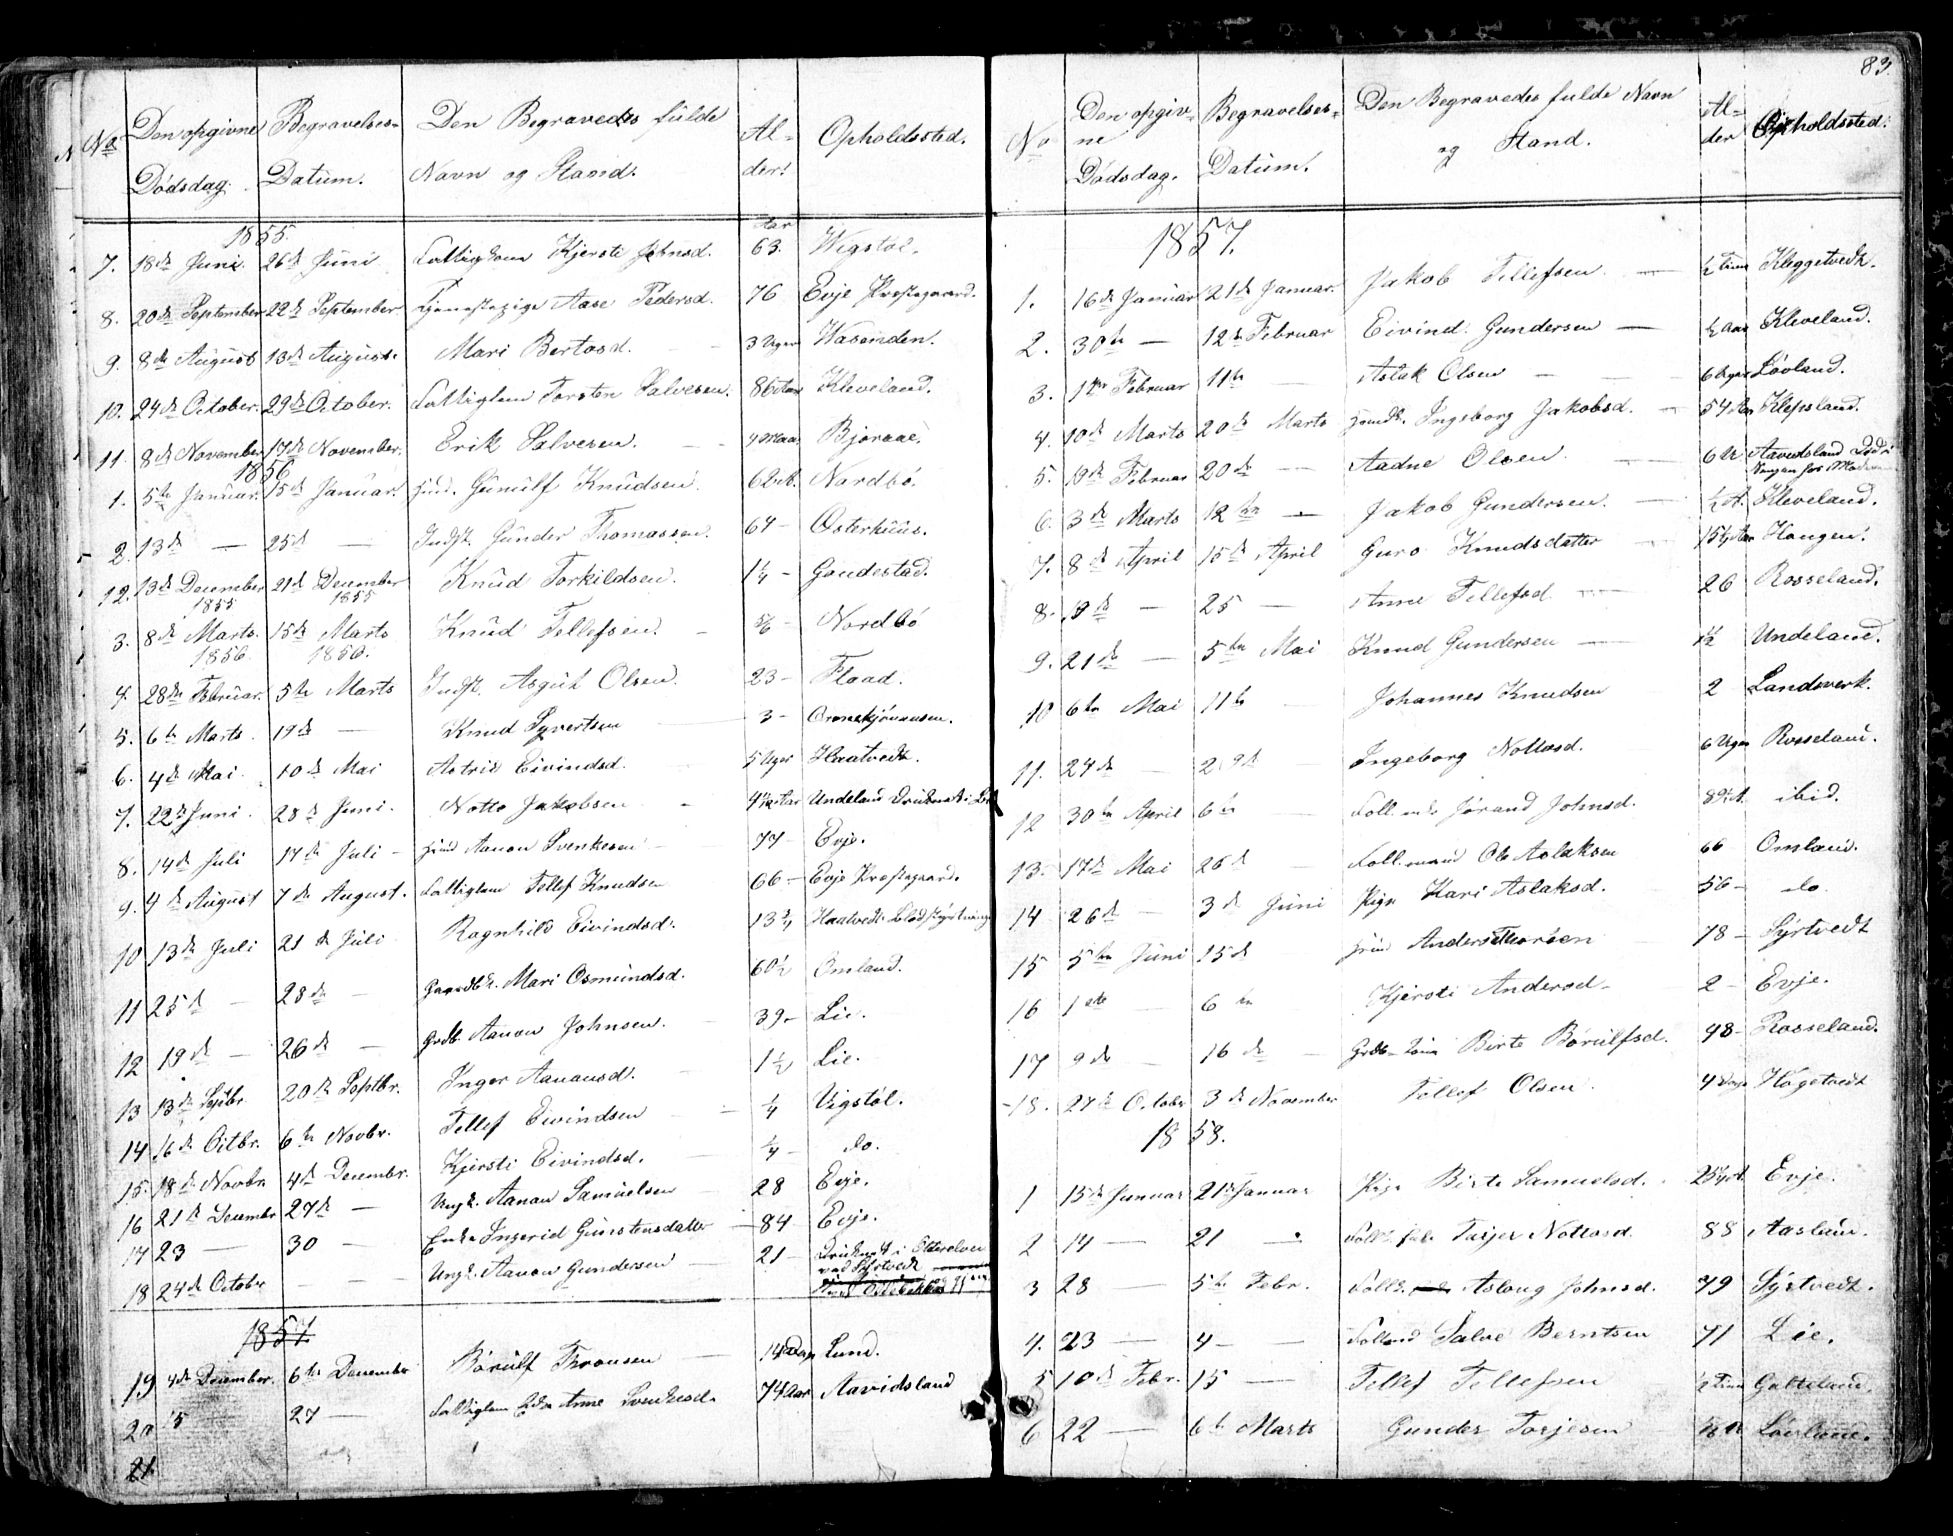 83.
No Den opgivne Dödsdag. Begravelses- Datum. Den Begravedes fulde Navn og Stand. Al- der. Opholdssted.
1855.
7. 18de Juni. 26de Juni Fattiglem Kjersti Johnsd. Aar 63. Wigstøl.
8. 20de September 22de September Tjenestepige Aase Pedersd. 76 Evje Præstegaard.
9. 8de August 13de August. Mari Bertosd. 3 Uger Wasenden.
10. 24de October. 29de October. Fattiglem Torsten Salvesen. 86 Aar Kleveland.
11. 8de November 17de November. Erik Salvesen. 4 Maa. Bjoraae.
1856
1. 5te Januar. 15de Januar. Gunulf Knudsen. 62 A. Nordbö.
2. 13de — 25de — Indst. Gunder Thomassen. 64 - Osterhuus.
12. 13de December 1855 21de December 1855 Knud Torkildsen. 1¼ - Gaudestad.
3. 8de Marts. 1856. 15de Marts 1856. Knud Tellefsen. 5/6 - Nordbö
4. 28de Februar. 5te Marts Indst. Asgut Olsen. 23 - Flaad.
5. 6te Marts. 19de — Knud Syvertsen 3 -
6. 4de Mai. 10de Mai Astrid Eivindsd. 5 Uger Haatvedt.
7. 22de Juni. 28de Juni. Notto Jakobsen 4½ Aar Undeland Druknet i
8. 14de Juli 17de Juli - Aanon Svenkesen 77 - Evje.
9. 4de August 7de August. Fattiglem Tellef Knudsen 66 - Evje Præstegaard.
10 13de Juli 21de Juli Ragnhild Eivindsd. 13¾ Haatvedt Blodstyrtning
11 25de — 28de — Mari Osmundsd. 60½ Omland.
12 19de — 26de — Grdb. Aanon Johnsen. 39 - Lie.
13 13de Septbr 20de Septbr. Inger Aanonsd. 1½ Lie.
14 16de Octbr. 6te Novbr. Tellef Eivindsen — ¼ Vigstöl.
15. 18de Novbr. 4de Decembr. Kjersti Eivindsd. ¼ - do.
16 21de Decembr 27de — Ungk. Aanon Samuelsen 28 Evje.
17 23 — 30 — Enke Ingerid Gunstensdatter — 84 Evje.
18 24de Octobr — — Ungk. Aanon Gundersen 21 - Druknet i Otterelven ved Syrtvedt
1857
19 4de December. 6te December Börulf Thronsen — 14 Dage Lund.
20 15 27 — Fattiglem Enke Anne Svenkesd. 74 Aar Aavidsland
21.
No Den opgiv- ne Dödsdag. Begravelses- Datum. Den Begravedes fulde Navn og Stand. Al- der Opholdssted.
1857.
1. 16de Januar 21de Januar. Jakob Tellefsen — ½ Time Kleggetvedt.
2. 30te — 12te Februar Eivind Gundersen — ½ Aar Kleveland.
3. 1ste Februar 11te — Aslak Olsen — 6 Uger Lövland.
4. 10de Marts 20de Marts Ingeborg Jakobsd. — 54 Aar Klepsland.
5. 19de Februar 20de — Aadne Olsen — 6 U Aavidsland
6 3de Marts 12te - Jakob Gundersen. — ½ A. Kleveland.
7. 8de April 15de April Guro Knudsdatter — 15½ Aar Haugen.
8. 19de — 25 — Anne Tellefsd. 26 Rosseland.
9. 21de — 5te Mai Knud Gundersen — 1½ Undeland.
10 6te Mai 11te - Johannes Knudsen 2 Landsverk.
11. 24de — 29de Ingeborg Nottosd. 6 Uger Rosseland.
12 30te April 6te — Jörand Johnsd. ibid.
13. 17de Mai 26de - Ole Aslaksen 66 Omland.
14 26de — 3de Juni Pige Kari Aslaksd. 56 - do.
15 5te Juni 15de Anders 78 - Syrtvedt
16 1ste — 6te Kjersti Andersd. 2 - Evje.
17 9de — 16de — Birte Börulfsd. 48 - Rosseland.
18. 27de October 3de November Tellef Olsen. 4 Dage
1858.
1 15de Januar 21de Januar Pige Birte Samuelsd. Evje.
2 14 — 21 - Tarjer Nottosd. 88 Aasland.
3 28 — 5te Febr. Aslaug Johnsd. 79 Syrtvedt.
4. 23 — 4 - Salve Berntsen 71 Lie.
5 10de Febr. 15 — Tellef Tellefsen ½ Time
6 22 — 6te Marts Gunder Torjesen Lövland.